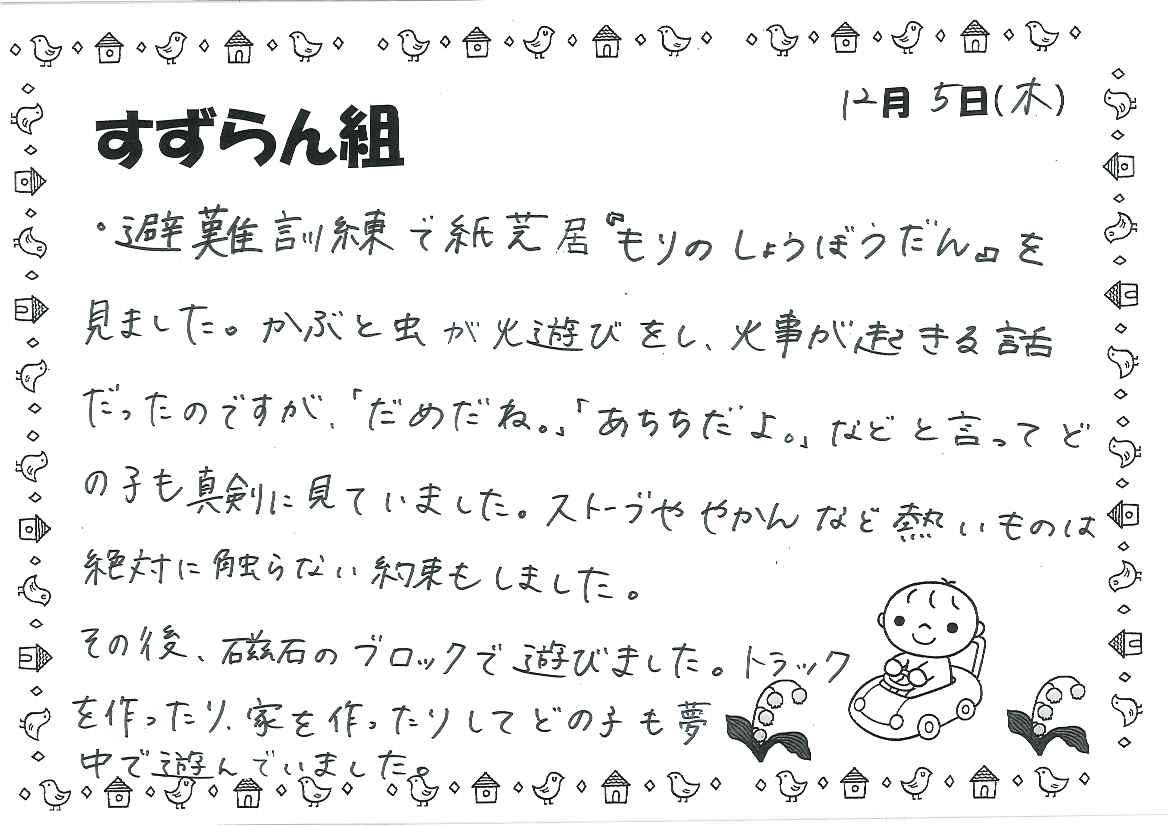 12月5日(木)
すずらん組
・避難訓練で紙芝居『もりのしょうぼうだん』を
見ました。かぶと虫が火遊びをし、火事が起きる話
だったのですが、「だめだね。」「あちちだよ。」などと言ってど
の子も真剣に見ていました。ストーブややかんなど熱いものは
絶対に触らない約束もしました。
その後、磁石のブロックで遊びました。トラック
を作ったり、家を作ったりしてどの子も夢
中で遊んでいました。